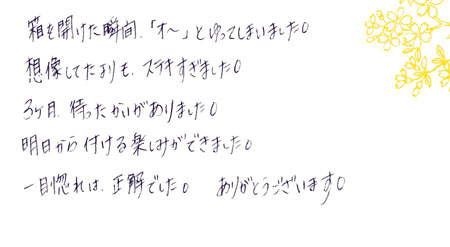 箱を開けた瞬間、「オ〜」とゆってしまいました。
想像してたよりも、ステキすぎました。
3ヶ月、待ったかいがありました。
明日から付ける楽しみができました。
一目惚れは、正解でした。 ありがとうございます。